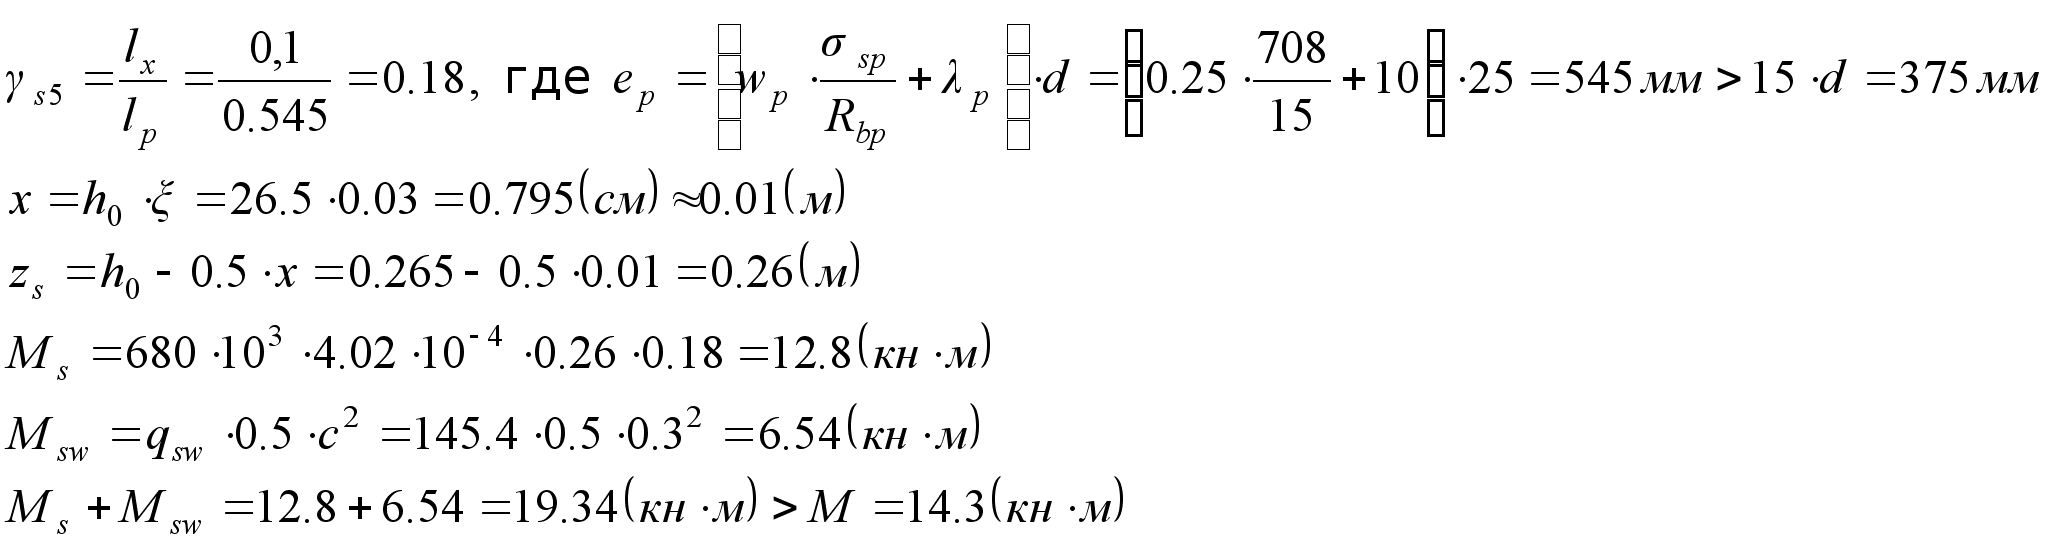 γ_s5 = l_x / l_p = 0,1 / 0.545 = 0.18, где e_p = (w_p · σ_sp / R_bp + λ_p) · d = (0.25 · 708 / 15 + 10) · 25 = 545 мм > 15 · d = 375 мм
x = h_0 · ξ = 26.5 · 0.03 = 0.795(см) ≈ 0.01(м)
z_s = h_0 - 0.5 · x = 0.265 - 0.5 · 0.01 = 0.26(м)
M_s = 680 · 10^3 · 4.02 · 10^-4 · 0.26 · 0.18 = 12.8(кн · м)
M_sw = q_sw · 0.5 · c^2 = 145.4 · 0.5 · 0.3^2 = 6.54(кн · м)
M_s + M_sw = 12.8 + 6.54 = 19.34(кн · м) > M = 14.3(кн · м)